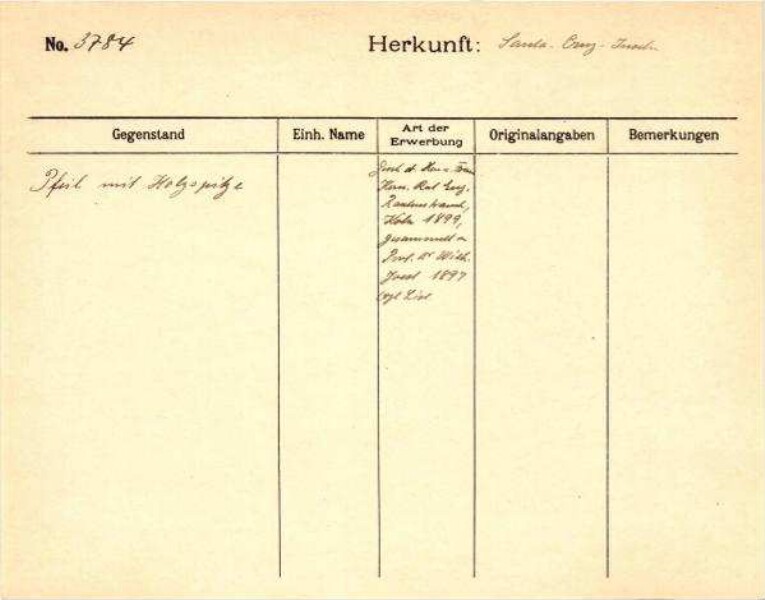 No. 3784
Herkunft: Santa-Cruz-Inseln
Gegenstand
Einh. Name
Art der
Erwerbung
Originalangaben
Bemerkungen
Pfeil mit Holzspitze
d. Herrn u. Frau
Eug.
Rautenstrauch,
Köln 1899,
gesammelt v.
Prof. Dr Wilh.
Joest 1897